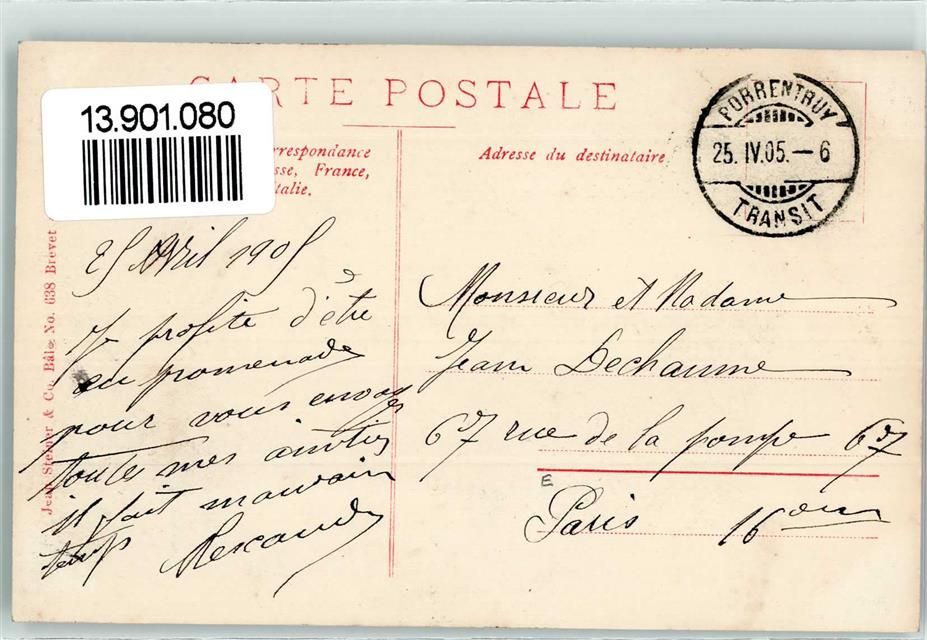 CARTE POSTALE
13.901.080
rrespondance
sse, France,
talie.
Adresse du destinataire
PORRENTRUY
25. IV. 05. — 6
TRANSIT
Jean Steiner & Co. Bâle No. 638 Brevet
25 Avril 1905
Je profite d'être
en promenade
pour vous envoyer
toutes mes amitiés
il fait mauvais
temps
Monsieur et Madame
Jean Dechaume
67 rue de la pompe 67
E
Paris 16